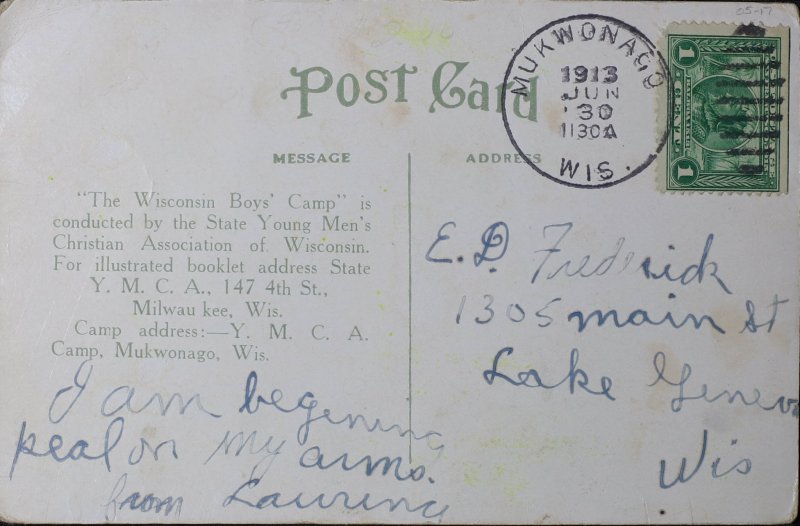 05-17
POST CARD
MUKWONAGO
1913
JUN
30
1130A
WIS.
1 1
MESSAGE
ADDRESS
"The Wisconsin Boys' Camp" is
conducted by the State Young Men's
Christian Association of Wisconsin.
For illustrated booklet address State
Y. M. C. A., 147 4th St.,
Milwau kee, Wis.
Camp address:—Y. M. C. A.
Camp, Mukwonago, Wis.
E.D. Frederick
1305 main st
Lake Geneva
Wis
I am begening
peal on my arms.
from Laurence